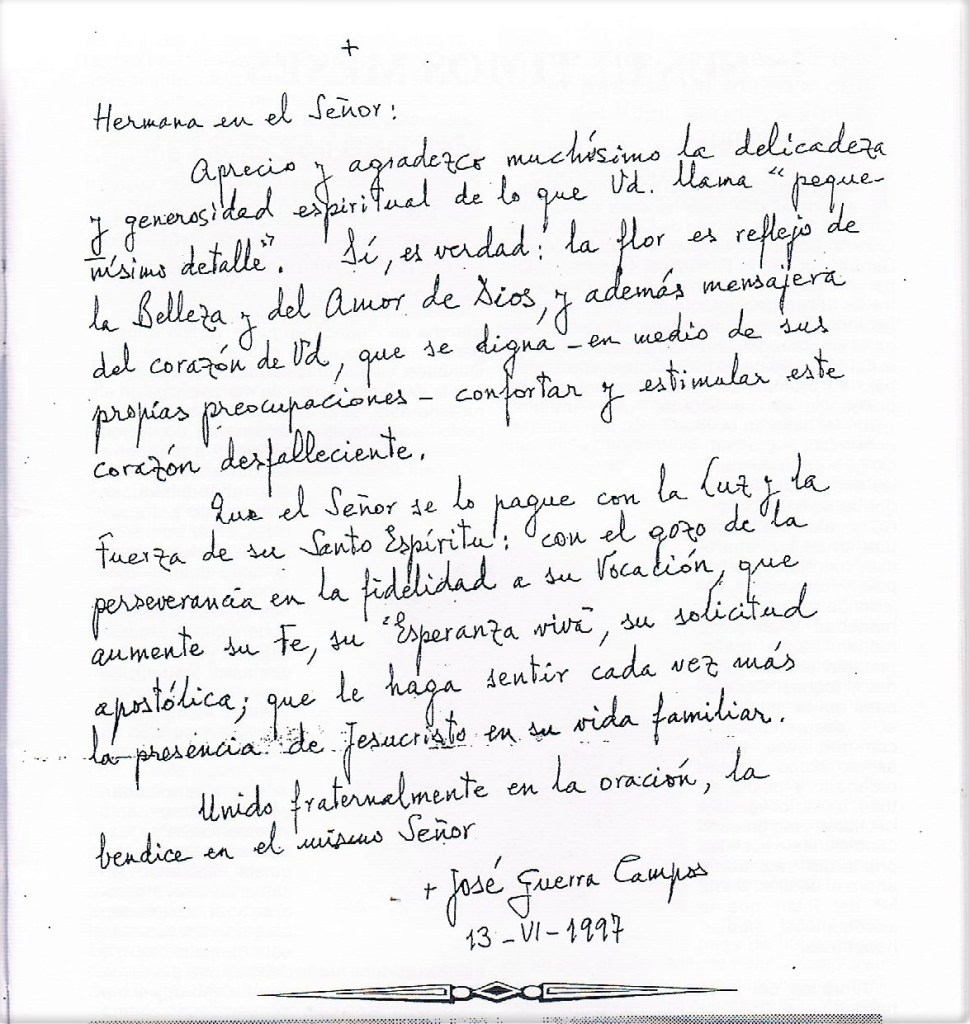 +
Hermana en el Señor:
Aprecio y agradezco muchísimo la delicadeza
y generosidad espiritual de lo que Vd. llama "peque-
nísimo detalle". Sí, es verdad: la flor es reflejo de
la Belleza y del Amor de Dios, y además mensajera
del corazón de Vd, que se digna -en medio de sus
propias preocupaciones- confortar y estimular este
corazón desfalleciente.
Que el Señor se lo pague con la Luz y la
Fuerza de su Santo Espíritu: con el gozo de la
perseverancia en la fidelidad a su Vocación, que
aumente su Fe, su "Esperanza viva", su solicitud
apostólica; que le haga sentir cada vez más
la presencia de Jesucristo en su vida familiar.
Unido fraternalmente en la oración, la
bendice en el mismo Señor
+ José Guerra Campos
13-VI-1997